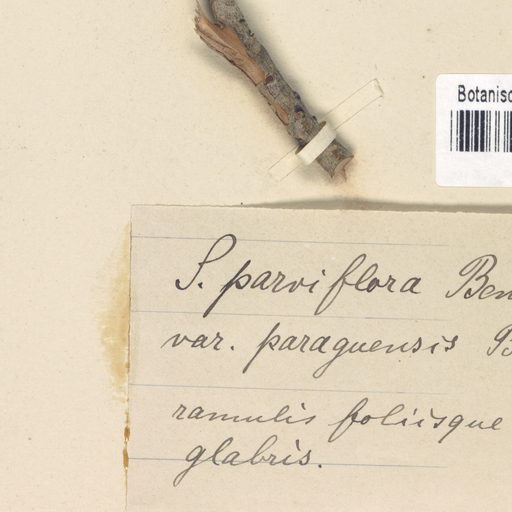 Botanisc
S. parviflora Ben
var. paraguensis B
ramulis foliisque
glabris.